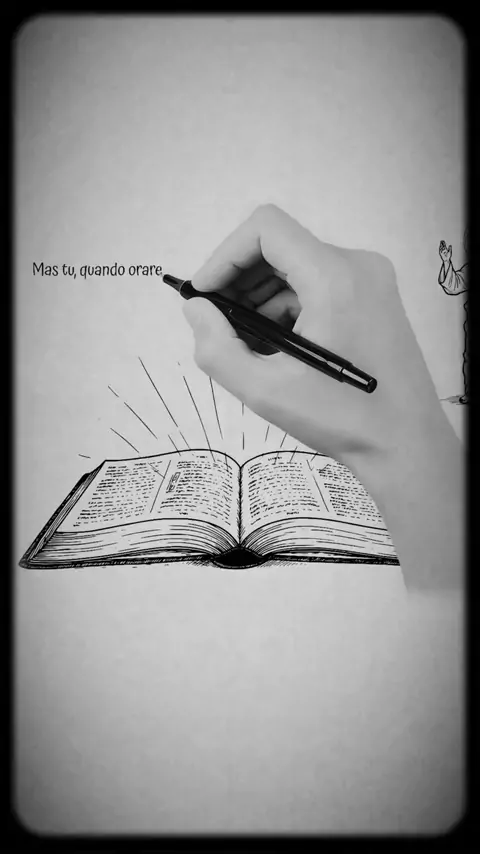 Mas tu, quando orare